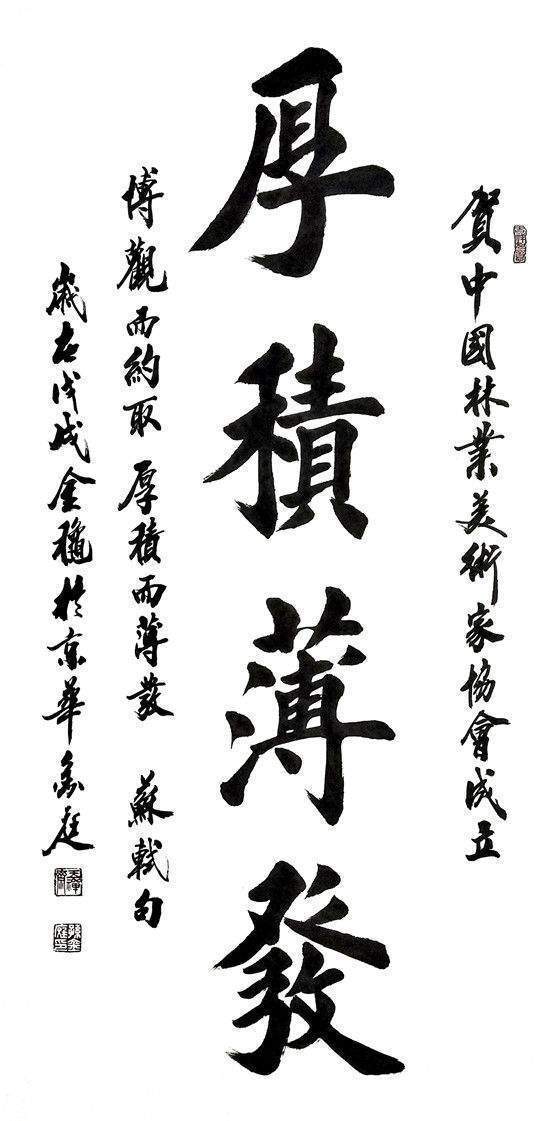 賀中國林業美術家協會成立
厚積薄發
博觀而約取厚積而薄發 蘇軾句
歲在戊戌金龝於京華